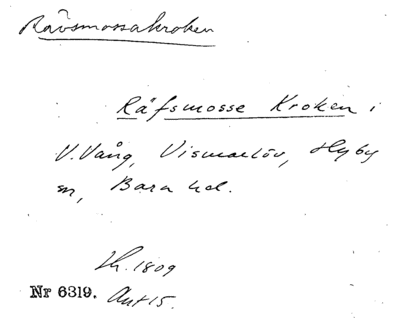 Rävsmossakroken
Räfsmosse Kroken i
V. Vång, Vismarlöv, Hyby
sn, Bara hd.
Lh. 1809
Nr 6319. Akt 15.